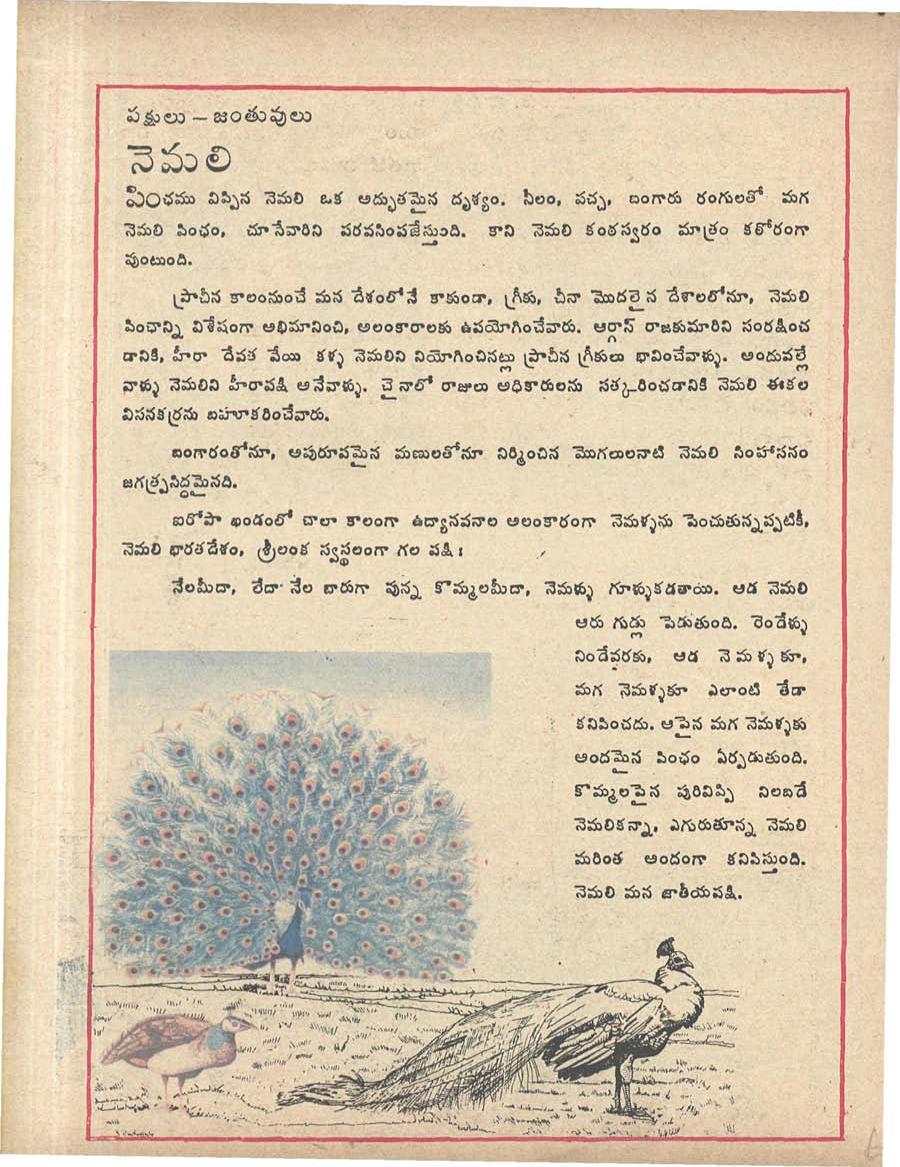 పక్షులు – జంతువులు
నెమలి
పింఛము విప్పిన నెమలి ఒక అద్భుతమైన దృశ్యం. నీలం, పచ్చ, బంగారు రంగులతో మగ
నెమలి పింఛం, చూసేవారిని పరవసింపజేస్తుంది. కాని నెమలి కంఠస్వరం మాత్రం కఠోరంగా
వుంటుంది.
ప్రాచీన కాలంనుంచే మన దేశంలోనే కాకుండా, గ్రీకు, చీనా మొదలైన దేశాలలోనూ, నెమలి
పింఛాన్ని విశేషంగా అభిమానించి, అలంకారాలకు ఉపయోగించేవారు. ఆర్గాస్ రాజకుమారిని సంరక్షించ
డానికి, హీరా దేవత వేయి కళ్ళ నెమలిని నియోగించినట్లు ప్రాచీన గ్రీకులు భావించేవాళ్ళు. అందువల్లే
వాళ్ళు నెమలిని హీరాపక్షి అనేవాళ్ళు. చైనాలో రాజులు అధికారులను సత్కరించడానికి నెమలి ఈకల
విసనకర్రను బహూకరించేవారు.
బంగారంతోనూ, అపురూపమైన మణులతోనూ నిర్మించిన మొగలులనాటి నెమలి సింహాసనం
జగత్ప్రసిద్ధమైనది.
ఐరోపా ఖండంలో చాలా కాలంగా ఉద్యానవనాల అలంకారంగా నెమళ్ళను పెంచుతున్నప్పటికీ,
నెమలి భారతదేశం, శ్రీలంక స్వస్థలంగా గల పక్షి :
నేలమీదా, లేదా నేల బారుగా వున్న కొమ్మలమీదా, నెమళ్ళు గూళ్ళుకడతాయి. ఆడ నెమలి
ఆరు గుడ్లు పెడుతుంది. రెండేళ్ళు
నిండేవరకు, ఆడ నెమళ్ళకూ,
మగ నెమళ్ళకూ ఎలాంటి తేడా
కనిపించదు. ఆపైన మగ నెమళ్ళకు
అందమైన పింఛం ఏర్పడుతుంది.
కొమ్మలపైన పురివిప్పి నిలబడే
నెమలికన్నా, ఎగురుతూన్న నెమలి
మరింత అందంగా కనిపిస్తుంది.
నెమలి మన జాతీయపక్షి.